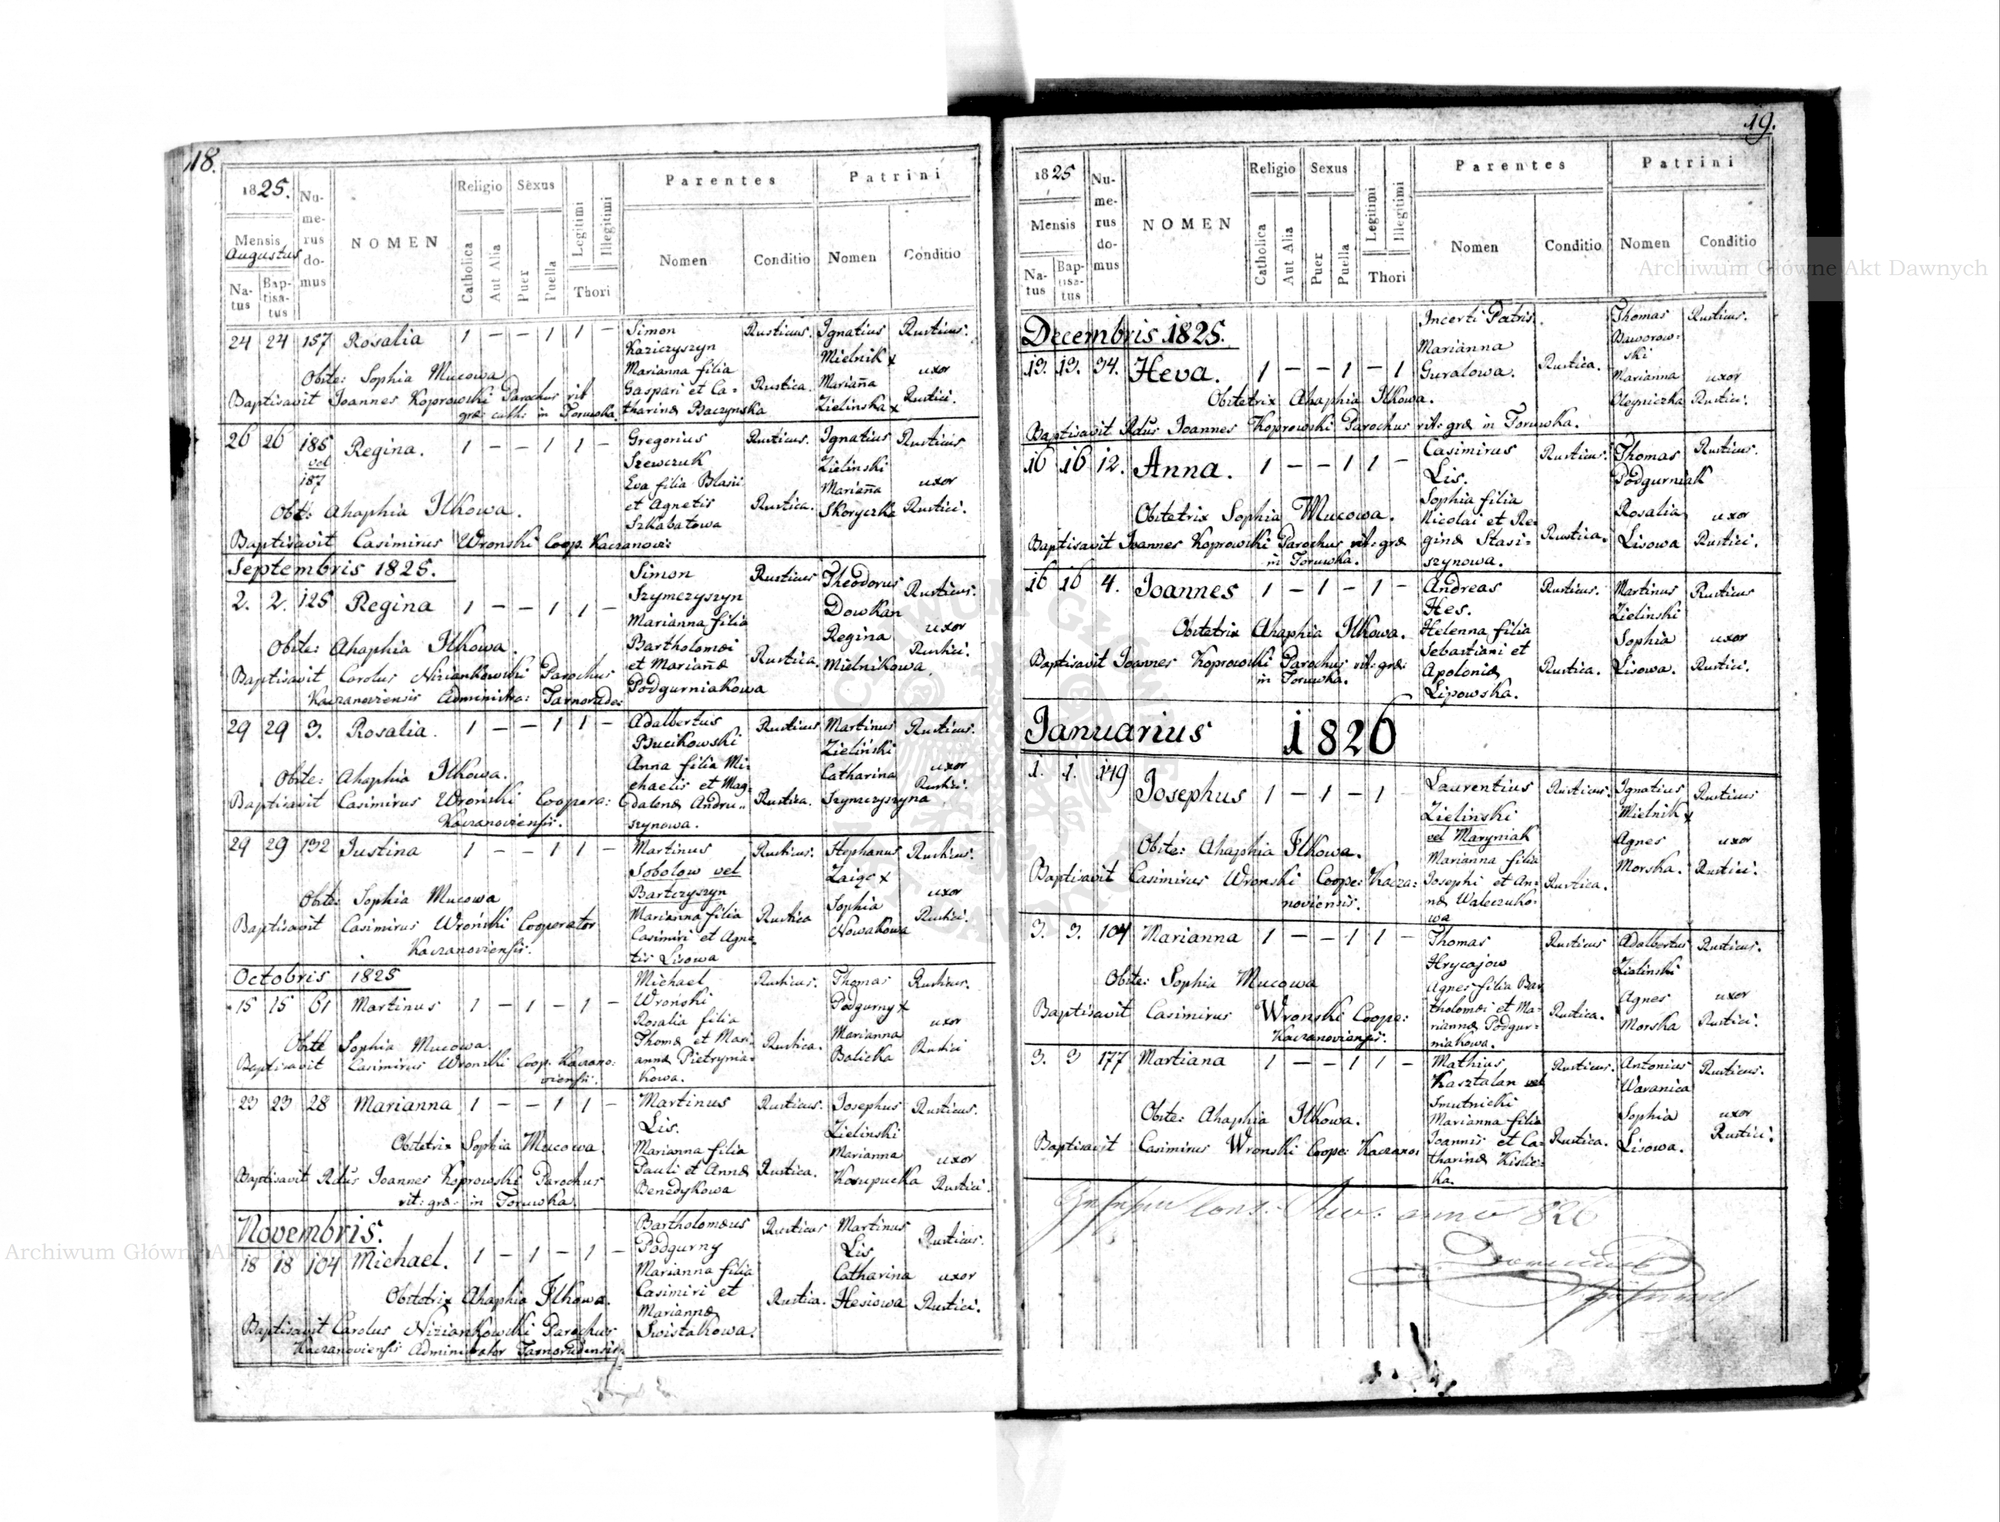 18.
1825.
Mensis
Augustus
Natus
Baptisatus
Numerus domus
NOMEN
Religio
Catholica
Aut Alia
Sexus
Puer
Puella
Legitimi
Illegitimi
Thori
Parentes
Nomen
Conditio
Patrini
Nomen
Conditio
24 24 157 Rosalia 1 – – 1 1 –
Simon Rusticus. Ignatius Rusticus.
Kaziczyszyn Mielnik x
Marianna filia uxor
Gaspari et Ca- Rustica. Mariana Rustici.
tharinæ Baczynska Zielinska x
Obste: Sophia Mucowa
Baptisavit Joannes Koprowski Parochus rit
græ: cath: in Toruwka
26 26 185 Regina. 1 – – 1 1 –
vel
187
Gregorius Rusticus. Ignatius Rusticus
Szewczuk Zielinski
Eva filia Blasii Mariana uxor
et Agnetis Rustica. Skoryczka Rustici.
Szkabatowa
Obst: Ahaphia Ilkowa.
Baptisavit Casimirus Wronski Coop. Kaczanovi:
Septembris 1825.
2. 2. 125 Regina 1 – – 1 1 –
Simon Rusticus Theodorus Rusticus.
Szymczyszyn Dowkan
Marianna filia Regina uxor
Bartholomæi Mielnikowa Rustici.
et Marianæ Rustica.
Podgurniakowa
Obste: Ahaphia Ilkowa.
Baptisavit Carolus Niziankowski Parochus
Kaczanoviensis Administra: Tarnorude:
29 29 3. Rosalia. 1 – – 1 1 –
Adalbertus Rusticus Martinus Rusticus.
Bucikowski Zieliński
Anna filia Mi- Catharina uxor
chaelis et Mag- Rustici.
dalenæ Andru- Rustica. Szymczyszyna
szynowa.
Obste: Ahaphia Ilkowa.
Baptisavit Casimirus Wroński Coopera:
Kaczanoviensis.
29 29 132 Justina 1 – – 1 1 –
Martinus Rusticus. Stephanus Rusticus.
Sobolow vel Zaiąc x
Bartczyszyn Sophia uxor
Marianna filia Rustica Nowakowa Rustici.
Casimiri et Agne-
tis Lisowa
Obste: Sophia Mucowa
Baptisavit Casimirus Wroński Cooperator
Kaczanoviensis.
Octobris 1825
15 15 61 Martinus 1 – 1 – 1 –
Michael Rusticus. Thomas Rusticus.
Wroński Podgurny x
Rosalia filia Marianna uxor
Thomæ et Mari- Rustica. Balicka Rustici
annæ Pietrynia-
kowa.
Obste Sophia Mucowa.
Baptisavit Casimirus Wronski Coop. Kaczano-
viensis.
23 23 28 Marianna 1 – – 1 1 –
Martinus Rusticus. Josephus Rusticus.
Lis. Zielinski
Marianna filia Marianna uxor
Pauli et Annæ Rustica. Rustici.
Benedykowa
Obstetrix Sophia Mucowa.
Baptisavit Rdus Joannes Koprowski Parochus
rit: græ: in Toruwka.
Novembris.
18 18 104 Michael. 1 – 1 – 1 –
Bartholomæus Rusticus Martinus Rusticus.
Podgurny Lis
Marianna filia Catharina uxor
Casimiri et Rustica. Hesiowa Rustici.
Mariannæ
Swistakowa.
Obstetrix Ahaphia Ilkowa.
Baptisavit Carolus Niziankowski Parochus
Kaczanoviensis Administrator Tarnorudensis
19.
1825
Mensis
Natus
Baptisatus
Numerus domus
NOMEN
Religio
Catholica
Aut Alia
Sexus
Puer
Puella
Legitimi
Illegitimi
Thori
Parentes
Nomen
Conditio
Patrini
Nomen
Conditio
Decembris 1825.
13. 13. 34. Heva. 1 – – 1 – 1
Incerti Patris. Thomas Rusticus.
Marianna Baworow-
Guralowa. Rustica. ski
Marianna uxor
Olejniczka Rustici.
Obstetrix Ahaphia Ilkowa.
Baptisavit Rdus Joannes Koprowski Parochus rit: græ in Toruwka.
16 16 12. Anna. 1 – – 1 1 –
Casimirus Rusticus. Thomas Rusticus.
Lis. Podgurniak
Sophia filia Rosalia uxor
Nicolai et Re- Rustica. Lisowa Rustici.
ginæ Stasi-
szynowa.
Obstetrix Sophia Mucowa.
Baptisavit Joannes Koprowski Parochus rit: græ
in Toruwka.
16 16 4. Joannes 1 – 1 – 1 –
Andreas Rusticus. Martinus Rusticus
Hes. Zielinski
Helenna filia Sophia uxor
Sebastiani et Rustica. Lisowa. Rustici.
Apoloniæ
Lipowska.
Obstetrix Ahaphia Ilkowa.
Baptisavit Joannes Koprowski Parochus rit: græ:
in Toruwka.
Januarius 1826
1. 1. 149 Josephus 1 – 1 – 1 –
Laurentius Rusticus. Ignatius Rusticus
Zielinski Mielnik x
vel Maryniak Agnes uxor
Marianna filia Morska. Rustici.
Josephi et An- Rustica.
næ Waleczuko-
wa
Obste: Ahaphia Ilkowa.
Baptisavit Casimirus Wronski Coope: Kacza:
noviensis.
3. 3. 104 Marianna 1 – – 1 1 –
Thomas Rusticus Adalbertus Rusticus.
Hrycajow Zielinski
Agnes filia Bar- Agnes uxor
tholomæi et Ma- Rustica. Morska Rustici.
riannæ Podgur-
niakowa.
Obste: Sophia Mucowa
Baptisavit Casimirus Wronski Coope:
Kaczanoviensis.
3. 3 177 Martiana 1 – – 1 1 –
Mathias Rusticus. Antonius Rusticus.
Kasztalan vel Waranica
Smutnicki Sophia uxor
Marianna filia Lisowa. Rustici.
Joannis et Ca- Rustica.
tharinæ Kislic-
ka.
Obste: Ahaphia Ilkowa.
Baptisavit Casimirus Wronski Coope: Kaczano:
anno 826
Archiwum Główne Akt Dawnych
Archiwum Główne Akt Dawnych